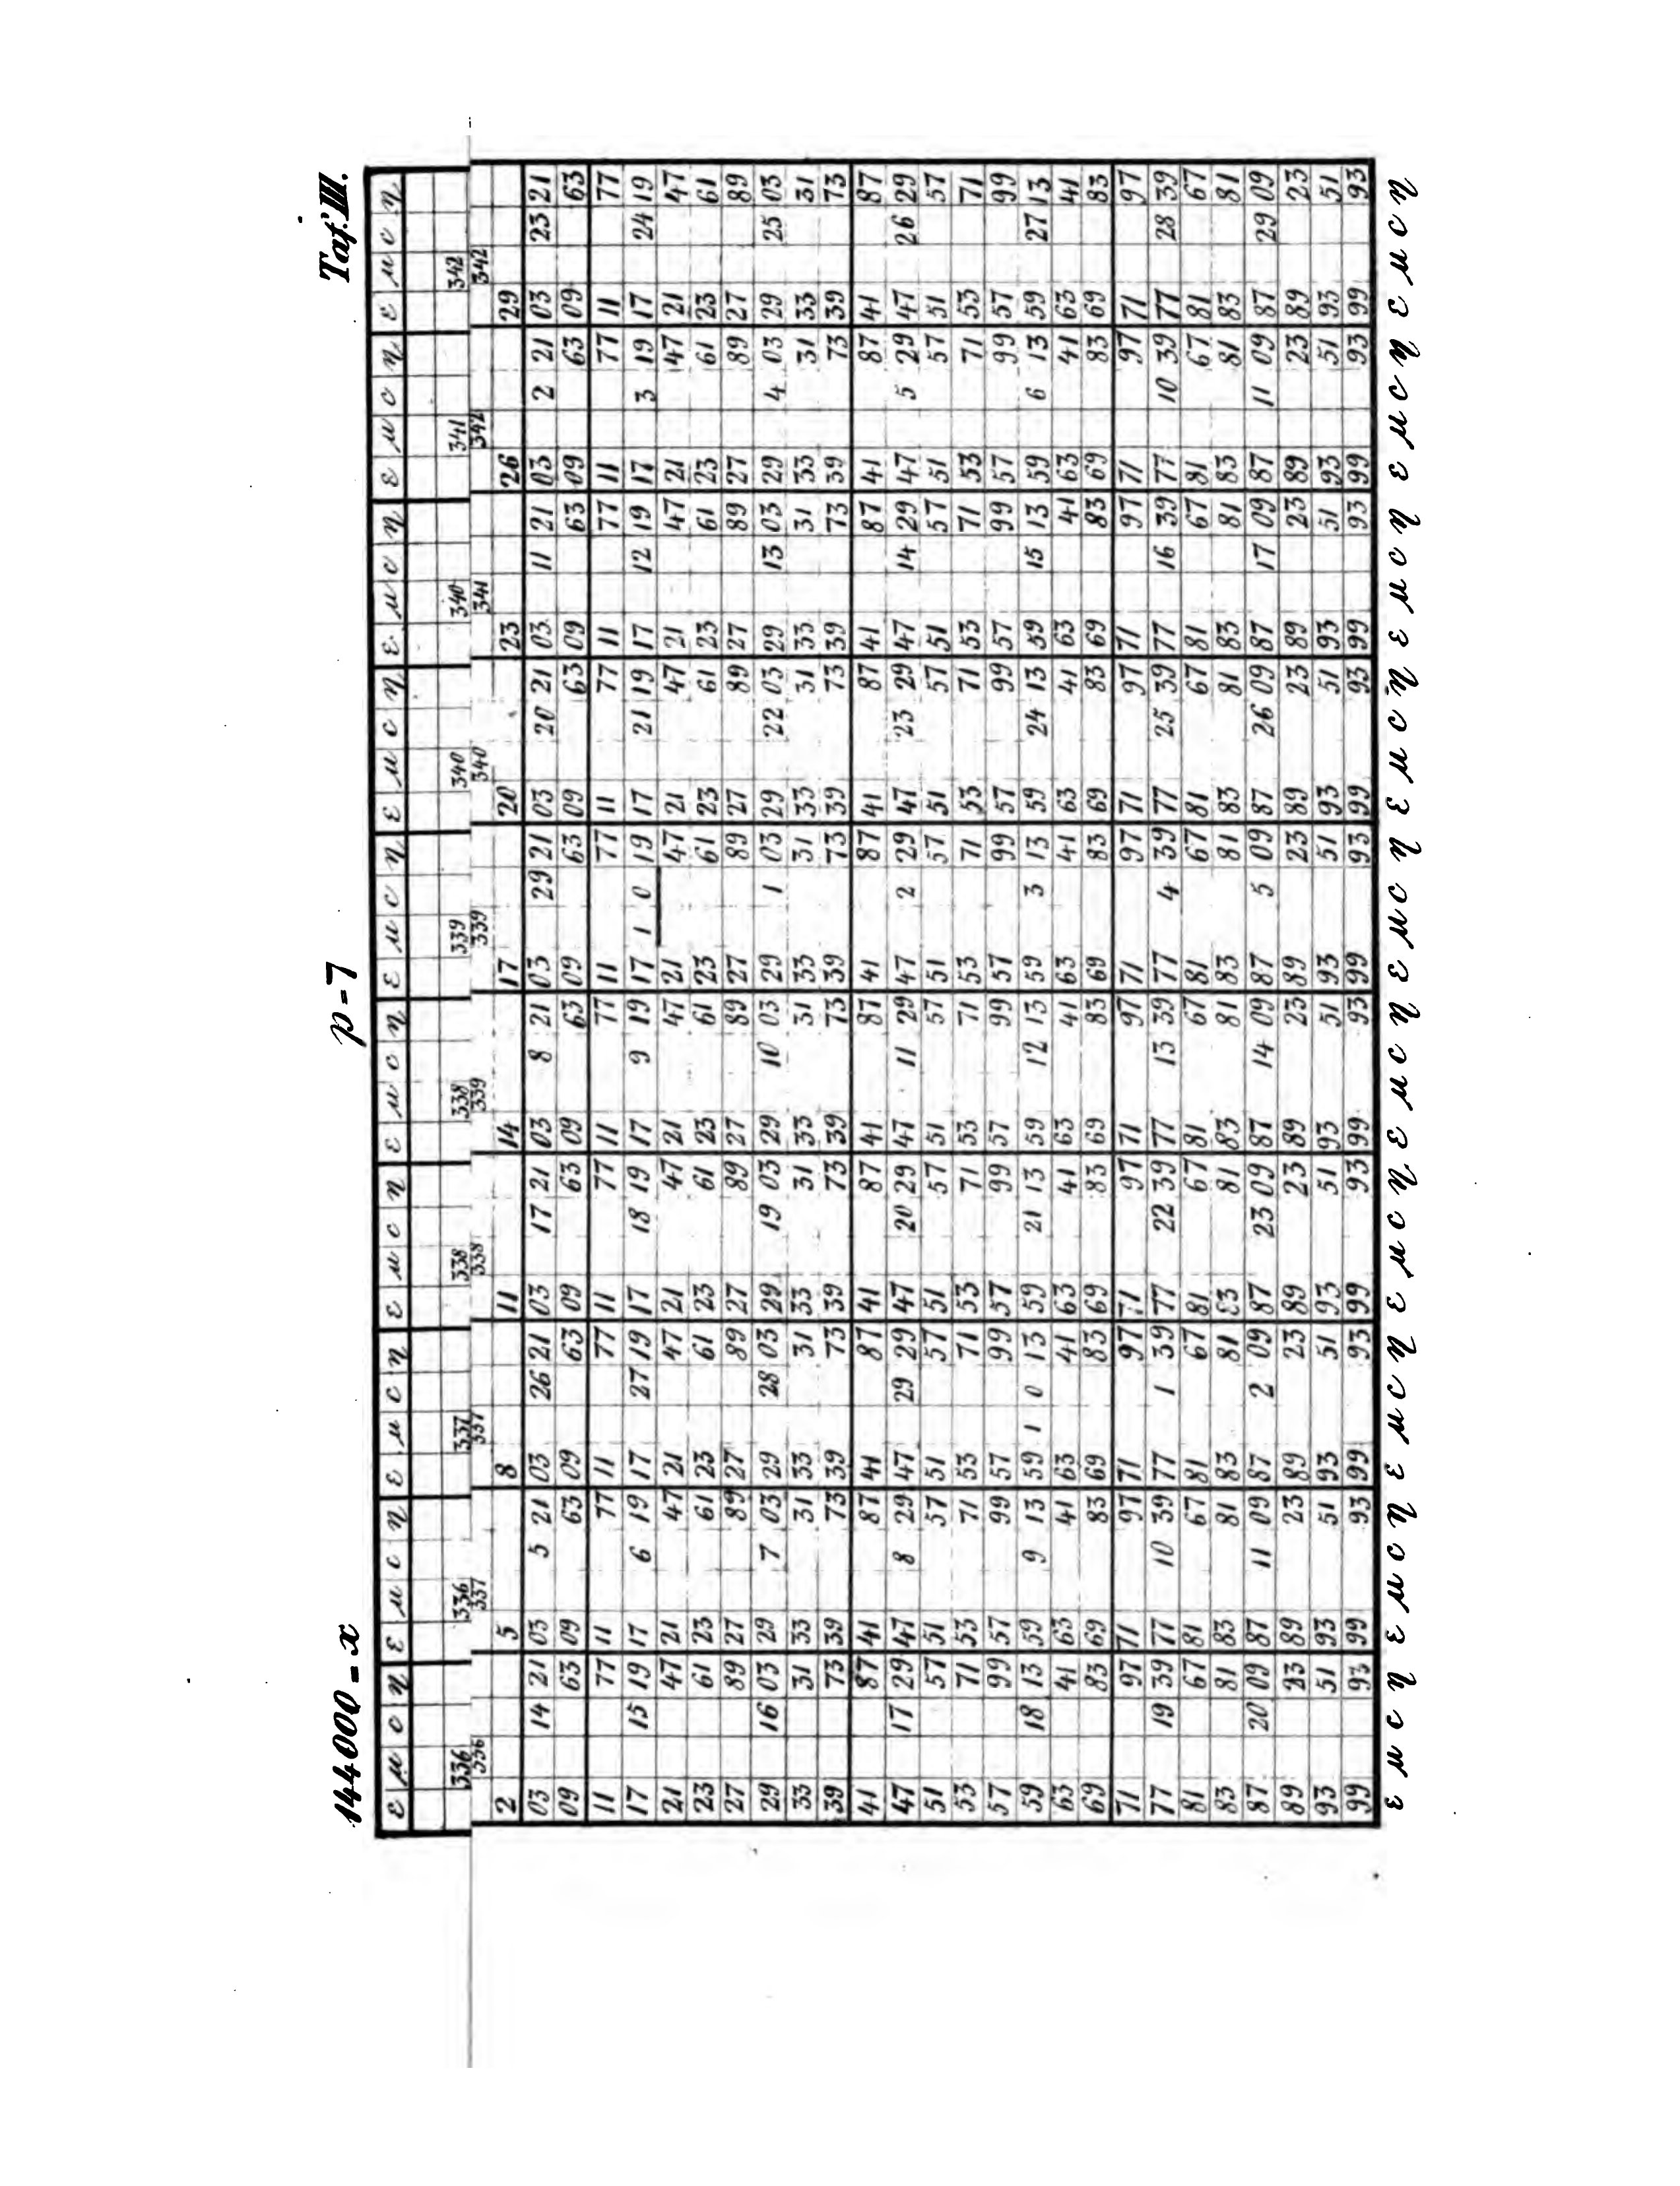 14400 = x p = 7 Taf. III.
ε μ c η ε μ c η ε μ c η ε μ c η ε μ c η ε μ c η ε μ c η ε μ c η ε μ c η ε μ c η
336 336 337 338 338 339 340 340 341 342
336 337 337 338 339 339 340 341 342 342
2 5 8 11 14 17 20 23 26 29
03 14 21 03 5 21 03 26 21 03 17 21 03 8 21 03 29 21 03 20 21 03 11 21 03 2 21 03 23 21
09 63 09 63 09 63 09 63 09 63 09 63 09 63 09 63 09 63 09 63
11 77 11 77 11 77 11 77 11 77 11 77 11 77 11 77 11 77 11 77
17 15 19 17 6 19 17 27 19 17 18 19 17 9 19 17 1 0 19 17 21 19 17 12 19 17 3 19 17 24 19
21 47 21 47 21 47 21 47 21 47 21 47 21 47 21 47 21 47 21 47
23 61 23 61 23 61 23 61 23 61 23 61 23 61 23 61 23 61 23 61
27 89 27 89 27 89 27 89 27 89 27 89 27 89 27 89 27 89 27 89
29 16 03 29 7 03 29 28 03 29 19 03 29 10 03 29 1 03 29 22 03 29 13 03 29 4 03 29 25 03
33 31 33 31 33 31 33 31 33 31 33 31 33 31 33 31 33 31 33 31
39 73 39 73 39 73 39 73 39 73 39 73 39 73 39 73 39 73 39 73
41 87 41 87 41 87 41 87 41 87 41 87 41 87 41 87 41 87 41 87
47 17 29 47 8 29 47 29 29 47 20 29 47 11 29 47 2 29 47 23 29 47 14 29 47 5 29 47 26 29
51 57 51 57 51 57 51 57 51 57 51 57 51 57 51 57 51 57 51 57
53 71 53 71 53 71 53 71 53 71 53 71 53 71 53 71 53 71 53 71
57 99 57 99 57 99 57 99 57 99 57 99 57 99 57 99 57 99 57 99
59 18 13 59 9 13 59 1 0 13 59 21 13 59 12 13 59 3 13 59 24 13 59 15 13 59 6 13 59 27 13
63 41 63 41 63 41 63 41 63 41 63 41 63 41 63 41 63 41 63 41
69 83 69 83 69 83 69 83 69 83 69 83 69 83 69 83 69 83 69 83
71 97 71 97 71 97 71 97 71 97 71 97 71 97 71 97 71 97 71 97
77 19 39 77 10 39 77 1 39 77 22 39 77 13 39 77 4 39 77 25 39 77 16 39 77 10 39 77 28 39
81 67 81 67 81 67 81 67 81 67 81 67 81 67 81 67 81 67 81 67
83 81 83 81 83 81 83 81 83 81 83 81 83 81 83 81 83 81 83 81
87 20 09 87 11 09 87 2 09 87 23 09 87 14 09 87 5 09 87 26 09 87 17 09 87 11 09 87 29 09
89 23 89 23 89 23 89 23 89 23 89 23 89 23 89 23 89 23 89 23
93 51 93 51 93 51 93 51 93 51 93 51 93 51 93 51 93 51 93 51
99 93 99 93 99 93 99 93 99 93 99 93 99 93 99 93 99 93 99 93
ε μ c η ε μ c η ε μ c η ε μ c η ε μ c η ε μ c η ε μ c η ε μ c η ε μ c η ε μ c η